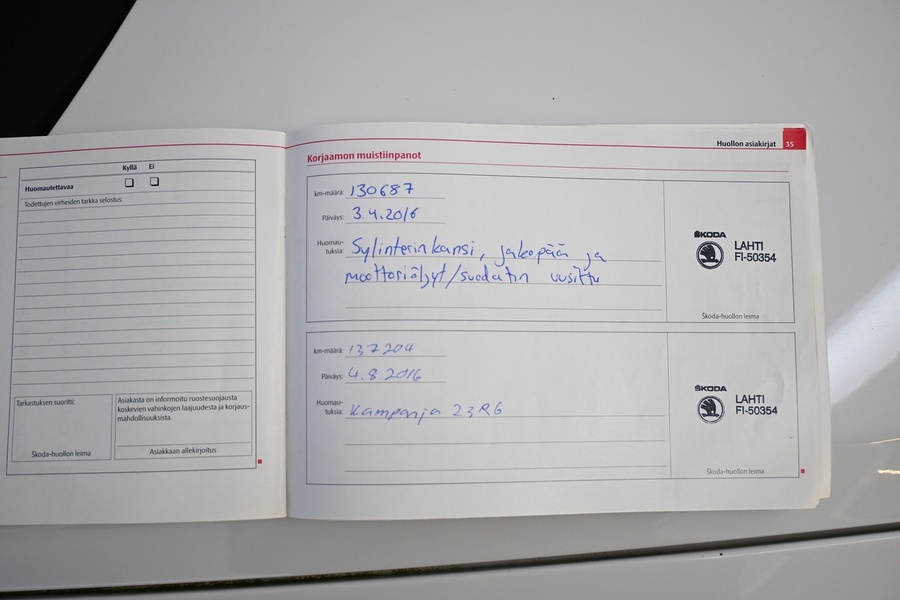 Kyllä Ei
Huomautettavaa
Todettujen virheiden tarkka selostus:
Tarkastuksen suoritti:
Škoda-huollon leima
Asiakasta on informoitu ruostesuojausta
koskevien vahinkojen laajuudesta ja korjaus-
mahdollisuuksista.
Asiakkaan allekirjoitus
Huollon asiakirjat 35
Korjaamon muistiinpanot
km-määrä: 130687
Päiväys: 3.4.2016
Huomau-
tuksia:
Sylinterin kansi, jakopää ja
moottoriöljyt/suodatin uusittu
ŠKODA
LAHTI
FI-50354
Škoda-huollon leima
km-määrä: 137204
Päiväys: 4.8.2016
Huomau-
tuksia:
Kampanja 23R6
ŠKODA
LAHTI
FI-50354
Škoda-huollon leima